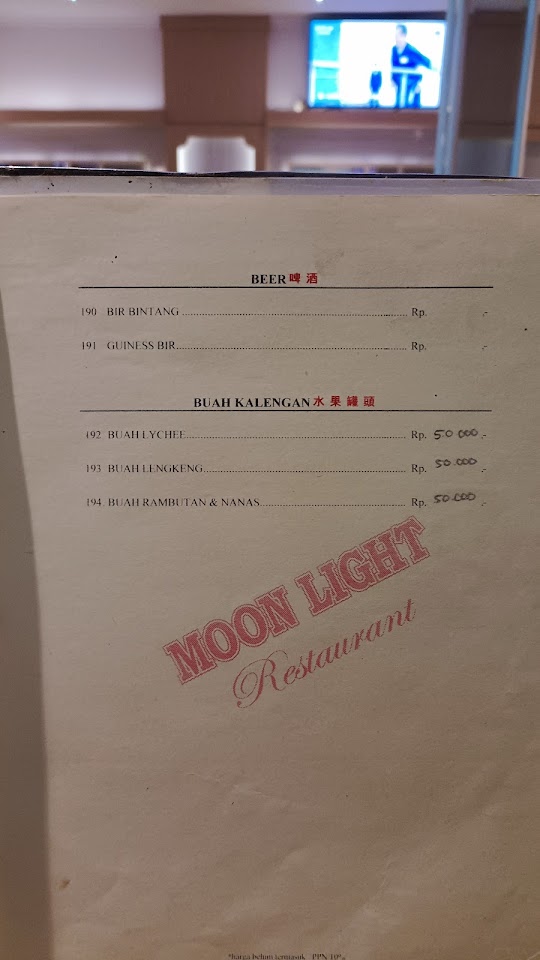 BEER 啤酒
190 BIR BINTANG ........................ Rp. .-
191 GUINESS BIR........................ Rp. .-
BUAH KALENGAN 水果罐頭
192 BUAH LYCHEE........................ Rp. 50.000 .-
193 BUAH LENGKENG........................ Rp. 50.000 .-
194 BUAH RAMBUTAN & NANAS........................ Rp. 50.000 .-
MOON LIGHT
Restaurant
*harga belum termasuk PPN 10%